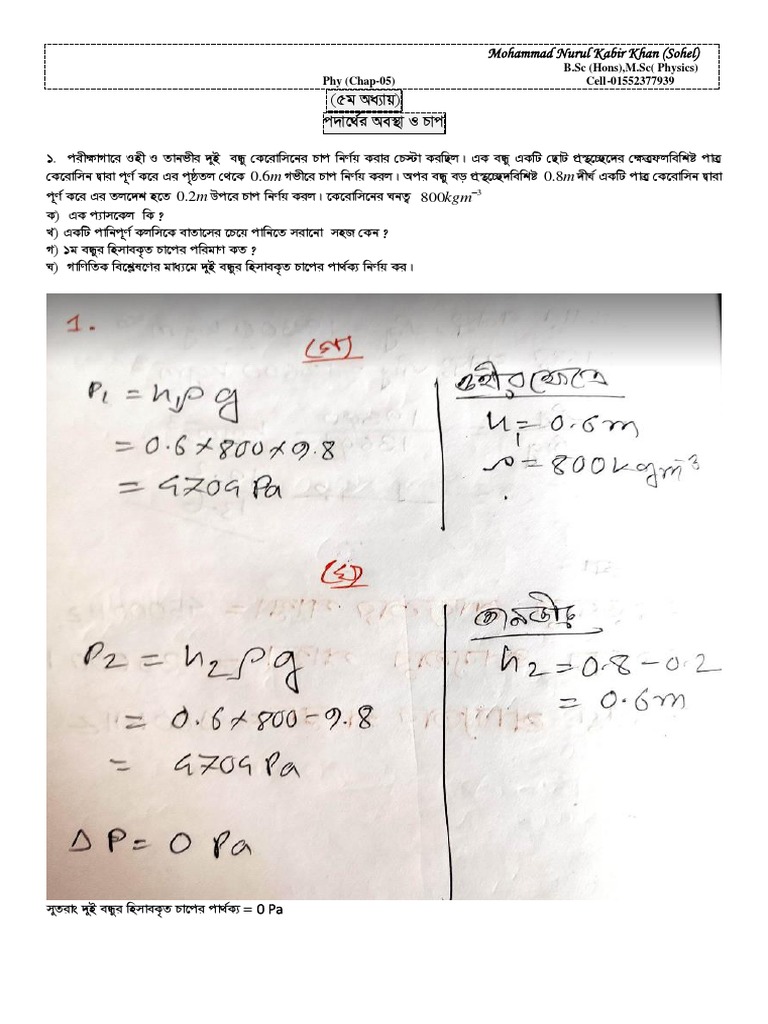 Mohammad Nurul Kabir Khan (Sohel)
B.Sc (Hons),M.Sc( Physics)
Phy (Chap-05) Cell-01552377939
(৫ম অধ্যায়)
পদার্থের অবস্থা ও চাপ
১. পরীক্ষাগারে ওহী ও তানভীর দুই বন্ধু কেরোসিনের চাপ নির্ণয় করার চেস্টা করছিল। এক বন্ধু একটি ছোট প্রস্থচ্ছেদের ক্ষেত্রফলবিশিষ্ট পাত্র
কেরোসিন দ্বারা পূর্ণ করে এর পৃষ্ঠতল থেকে 0.6m গভীরে চাপ নির্ণয় করল। অপর বন্ধু বড় প্রস্থচ্ছেদবিশিষ্ট 0.8m দীর্ঘ একটি পাত্র কেরোসিন দ্বারা
পূর্ণ করে এর তলদেশ হতে 0.2m উপরে চাপ নির্ণয় করল। কেরোসিনের ঘনত্ব 800kgm⁻³
ক) এক প্যাসকেল কি ?
খ) একটি পানিপূর্ণ কলসিকে বাতাসের চেয়ে পানিতে সরানো সহজ কেন ?
গ) ১ম বন্ধুর হিসাবকৃত চাপের পরিমাণ কত ?
ঘ) গাণিতিক বিশ্লেষণের মাধ্যমে দুই বন্ধুর হিসাবকৃত চাপের পার্থক্য নির্ণয় কর।
1.
(গ)
P₁ = h₁ρg
= 0.6×800×9.8
= 4704 Pa
ওহীর ক্ষেত্রে
h₁ = 0.6m
ρ = 800kgm⁻³
(ঘ)
P₂ = h₂ρg
= 0.6×800-9.8
= 4704 Pa
ΔP = 0 Pa
তানভীর
h₂ = 0.8-0.2
= 0.6m
সুতরাং দুই বন্ধুর হিসাবকৃত চাপের পার্থক্য = 0 Pa